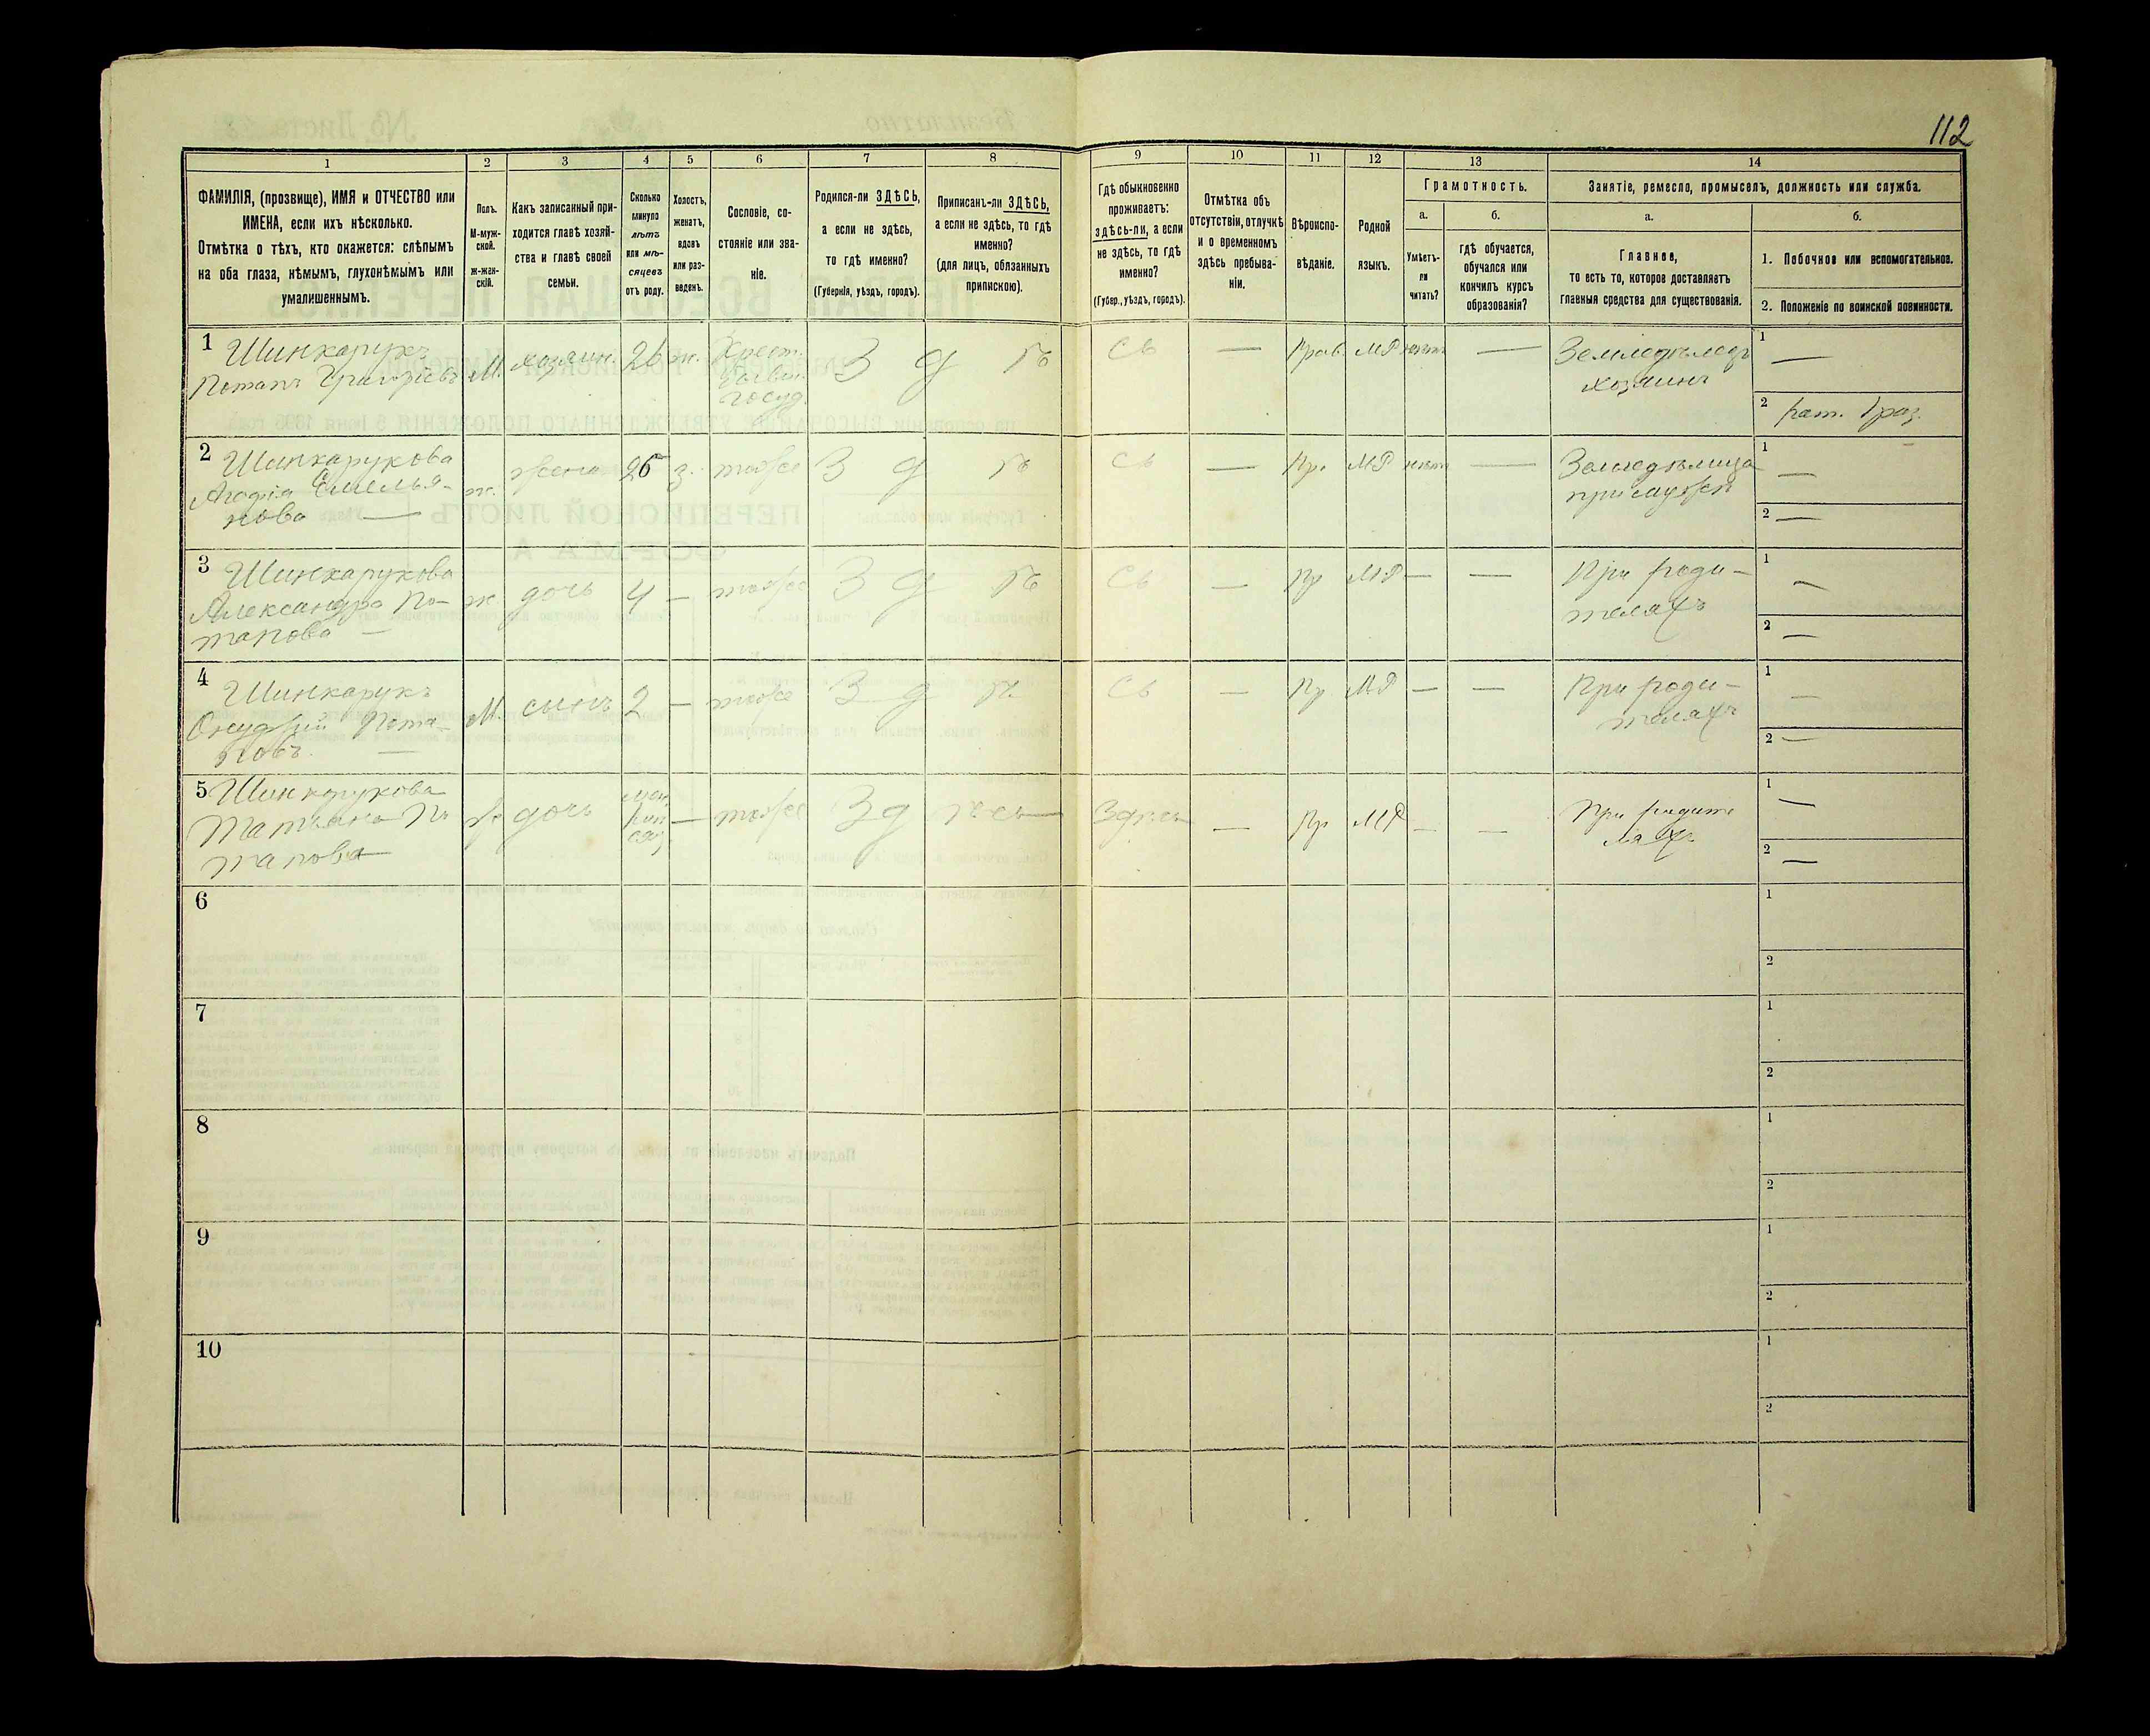 112
1
2
3
4
5
6
7
8
9
10
11
12
13
14
ФАМИЛІЯ, (прозвище), ИМЯ и ОТЧЕСТВО или
ИМЕНА, если ихъ нѣсколько.
Отмѣтка о тѣхъ, кто окажется: слѣпымъ
на оба глаза, нѣмымъ, глухонѣмымъ или
умалишеннымъ.
Полъ.
М-муж-
ской.
Ж-жен-
скій.
Какъ записанный при-
ходится главѣ хозяй-
ства и главѣ своей
семьи.
Сколько
минуло
лѣтъ
или мѣ-
сяцевъ
отъ роду.
Холостъ,
женатъ,
вдовъ
или раз-
веденъ.
Сословіе, со-
стояніе или зва-
ніе.
Родился-ли ЗДѢСЬ,
а если не здѣсь,
то гдѣ именно?
(Губернія, уѣздъ, городъ).
Приписанъ-ли ЗДѢСЬ,
а если не здѣсь, то гдѣ
именно?
(для лицъ, обязанныхъ
припискою).
Гдѣ обыкновенно
проживаетъ:
здѣсь-ли, а если
не здѣсь, то гдѣ
именно?
(Губер., уѣздъ, городъ).
Отмѣтка объ
отсутствіи, отлучкѣ
и о временномъ
здѣсь пребыва-
ніи.
Вѣроиспо-
вѣданіе.
Родной
языкъ.
Грамотность.
а.
Умѣетъ-
ли
читать?
б.
гдѣ обучается,
обучался или
кончилъ курсъ
образованія?
Занятіе, ремесло, промыселъ, должность или служба.
а.
Главное,
то есть то, которое доставляетъ
главныя средства для существованія.
б.
1. Побочное или вспомогательное.
2. Положеніе по воинской повинности.
1 Шинкарукъ
Потапъ Григоріевъ М. хозяин. 26 ж. Крест. З д ѣ сь — Прав. МР нѣтъ — Земледѣлецъ 1 —
госуд. хозяинъ
2 рат.
2 Шинкарукова
Агафія Емелья- ж. жена 26 з. тоже З д ѣ сь — Пр. МР нѣтъ — Земледѣлица 1 —
нова — 2 —
3 Шинкарукова
Александра По- ж. дочь 4 — тоже З д ѣ сь — Пр МР — — При роди- 1 —
тапова — телахъ 2 —
4 Шинкарукъ
Онуфрій Пота- М. сынъ 2 — тоже З д ѣ сь — Пр. МР — — При роди- 1 —
повъ. — телахъ 2 —
5 Шинкарукова
Татьяна По дочь — тоже Зд ѣсь Здѣсь — Пр МР — — При родите 1 —
тапова ляхъ 2 —
6 1
2
7 1
2
8 1
2
9 1
2
10 1
2